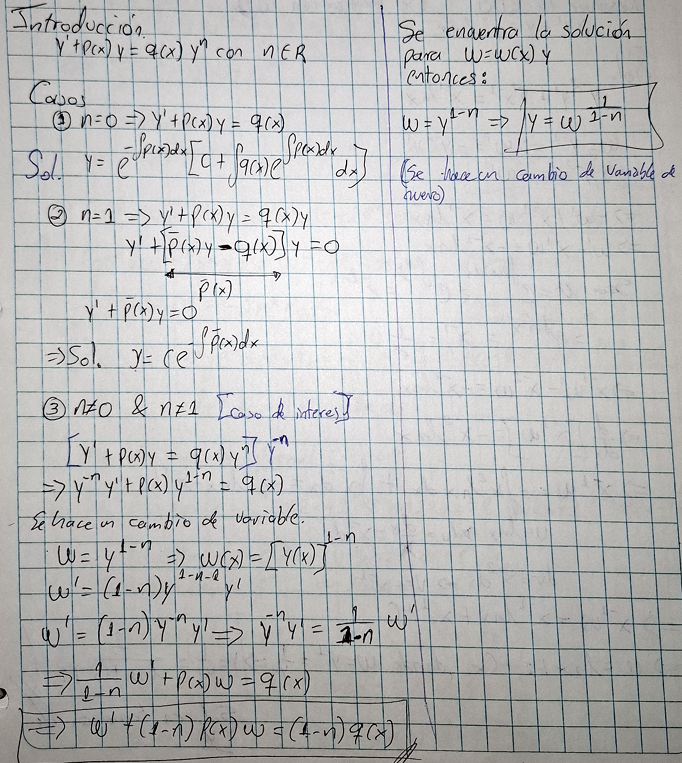 Introducción.
y' + p(x) y = q(x) yⁿ con n ∈ R
Casos
① n=0 ⇒ y' + p(x) y = q(x)
Sol. y = e^{-∫p(x)dx} [C + ∫q(x) e^{∫p(x)dx} dx]
② n=1 ⇒ y' + p(x) y = q(x) y
y' + [p̄(x) y - q(x)] y = 0
p̄(x)
y' + p̄(x) y = 0
⇒ Sol. y = C e^{-∫p̄(x)dx}
③ n≠0 & n≠1 [caso de interes]
[y' + p(x) y = q(x) yⁿ] y^{-n}
⇒ y^{-n} y' + p(x) y^{1-n} = q(x)
Se hace un cambio de variable.
w = y^{1-n} ⇒ w(x) = [y(x)]^{1-n}
w' = (1-n) y^{1-n-1} y'
w' = (1-n) y^{-n} y' ⇒ y^{-n} y' = \frac{1}{1-n} w'
⇒ \frac{1}{1-n} w' + p(x) w = q(x)
⇒ w' + (1-n) p(x) w = (1-n) q(x)
Se encuentra la solución
para w = w(x) y
entonces:
w = y^{1-n} ⇒ y = w^{\frac{1}{1-n}}
(Se hace un cambio de variable de
nuevo)